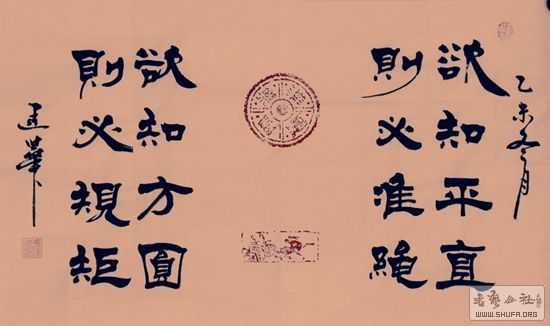 乙未冬月
欲知平直
則必准繩
欲知方圓
則必規矩
華
书艺公社
WWW.SHUFA.ORG